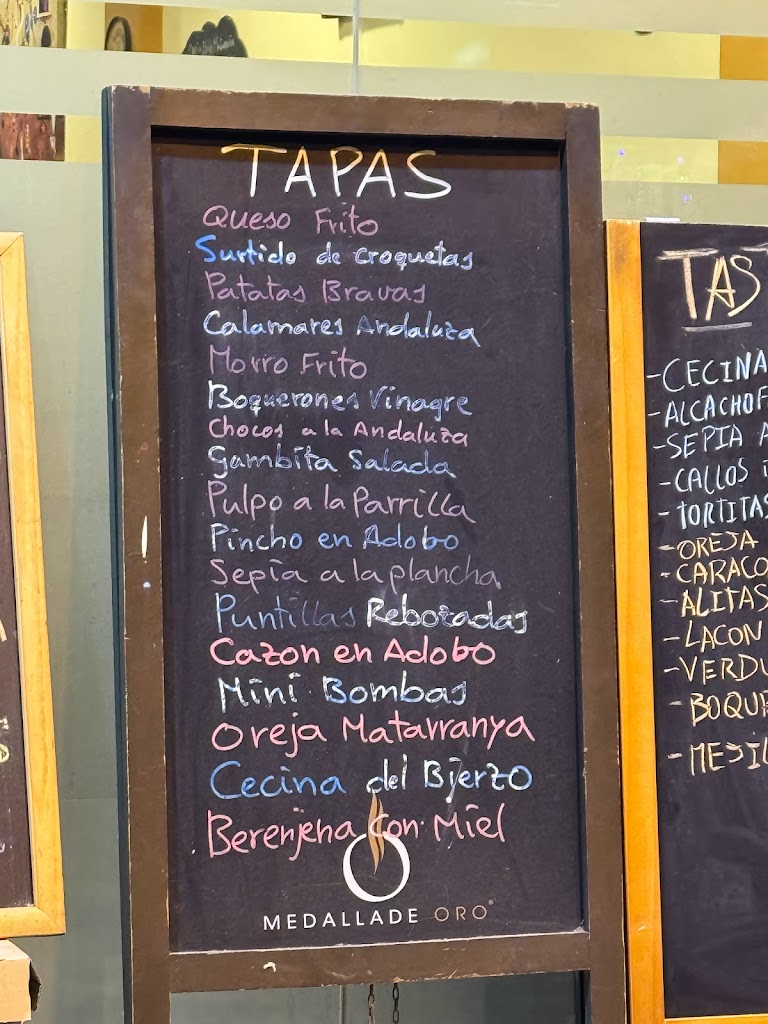 TAPAS
Queso Frito
Surtido de croquetas
Patatas Bravas
Calamares Andaluza
Morro Frito
Boquerones Vinagre
Chocos a la Andaluza
Gambita Salada
Pulpo a la Parrilla
Pincho en Adobo
Sepia a la plancha
Puntillas Rebozadas
Cazon en Adobo
Mini Bombas
Oreja Matarranya
Cecina del Bierzo
Berenjena con Miel
MEDALLADE ORO
TAST
-CECINA
-ALCACHOF
-SEPIA A
-CALLOS
-TORTITAS
-OREJA
-CARACO
-ALITAS
-LACON
-VERDU
-BOQUE
-MEJIL